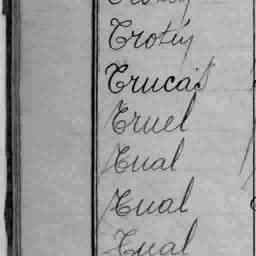 Trotiy
Trucas
Truel
Tual
Tual
Tual